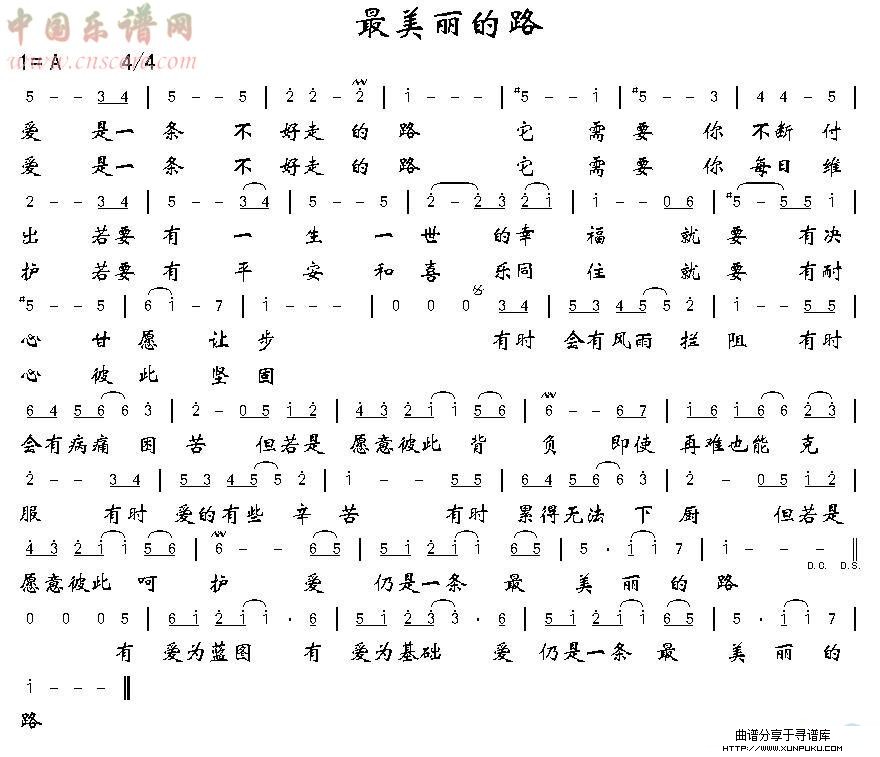 中国乐谱网
www.cnscore.com
最美丽的路
1=A 4/4
5 - - 3 4 | 5 - - 5 | 2 2 - 2 | i - - - | #5 - - i | #5 - - 3 | 4 4 - 5 |
爱 是一 条 不 好走 的 路 它 需 要 你 不断 付
爱 是一 条 不 好走 的 路 它 需 要 你 每日 维
2 - - 3 4 | 5 - - 3 4 | 5 - - 5 | 2 - 2 3 2 i | i - - 0 6 | #5 - 5 5 i |
出 若要 有 一 生 一 世 的幸 福 就 要 有决
护 若要 有 平 安 和 喜 乐同 住 就 要 有耐
#5 - - 5 | 6 i - 7 | i - - - | 0 0 0 3 4 | 5 3 4 5 5 2 | i - - 5 5 |
心 甘 愿 让 步 有时 会有风雨 拦 阻 有时
心 彼 此 坚 固
6 4 5 6 6 3 | 2 - 0 5 i 2 | 4 3 2 i i 5 6 | 6 - - 6 7 | i 6 i 6 6 2 3 |
会有病痛 困 苦 但若是 愿意彼此 背 负 即使 再难也能 克
2 - - 3 4 | 5 3 4 5 5 2 | i - - 5 5 | 6 4 5 6 6 3 | 2 - 0 5 i 2 |
服 有时 爱的有些 辛 苦 有时 累得无法 下 厨 但若是
4 3 2 i i 5 6 | 6 - - 6 5 | 5 i 2 i i 6 5 | 5 · i i 7 | i - - - ‖
D.C. D.S.
愿意彼此 呵 护 爱 仍是一条 最 美 丽 的 路
0 0 0 5 | 6 i 2 i i · 6 | 5 i 2 3 3 · 6 | 5 i 2 i i 6 5 | 5 · i i 7 |
有 爱为蓝图 有 爱为基础 爱 仍是一条 最 美 丽 的
i - - - ‖
路
曲谱分享于寻谱库
HTTP://WWW.XUNPUKU.COM